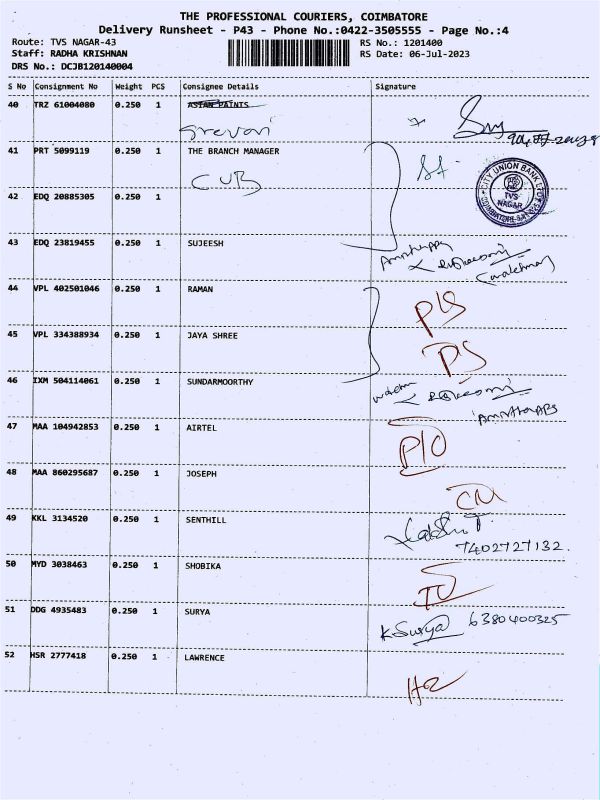 THE PROFESSIONAL COURIERS, COIMBATORE
Delivery Runsheet - P43 - Phone No.:0422-3505555 - Page No.:4
Route: TVS NAGAR-43 RS No.: 1201400
Staff: RADHA KRISHNAN RS Date: 06-Jul-2023
DRS No.: DCJB120140004
S No Consignment No Weight PCS Consignee Details Signature
40 TRZ 61004080 0.250 1 ASIAN PAINTS
41 PRT 5099119 0.250 1 THE BRANCH MANAGER
CUB
CITY UNION BANK LTD
TVS NAGAR
42 EDQ 20885305 0.250 1
43 EDQ 23819455 0.250 1 SUJEESH
44 VPL 402501046 0.250 1 RAMAN
P/S
45 VPL 334388934 0.250 1 JAYA SHREE
PS
46 IXM 504114061 0.250 1 SUNDARMOORTHY
47 MAA 104942853 0.250 1 AIRTEL
P/O
48 MAA 860295687 0.250 1 JOSEPH
49 KKL 3134520 0.250 1 SENTHILL
7402727132.
50 MYD 3038463 0.250 1 SHOBIKA
51 DDG 4935483 0.250 1 SURYA
K Surya 6380400325
52 HSR 2777418 0.250 1 LAWRENCE